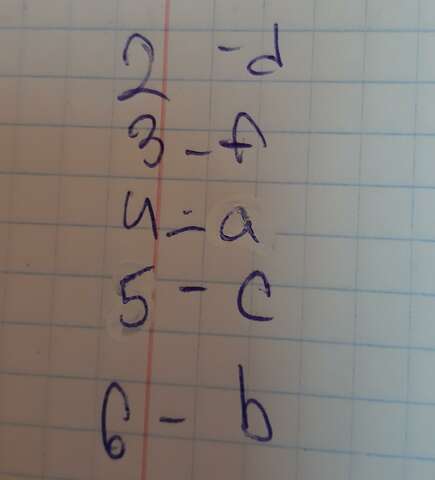 2 - d
3 - f
4 - a
5 - c
6 - b